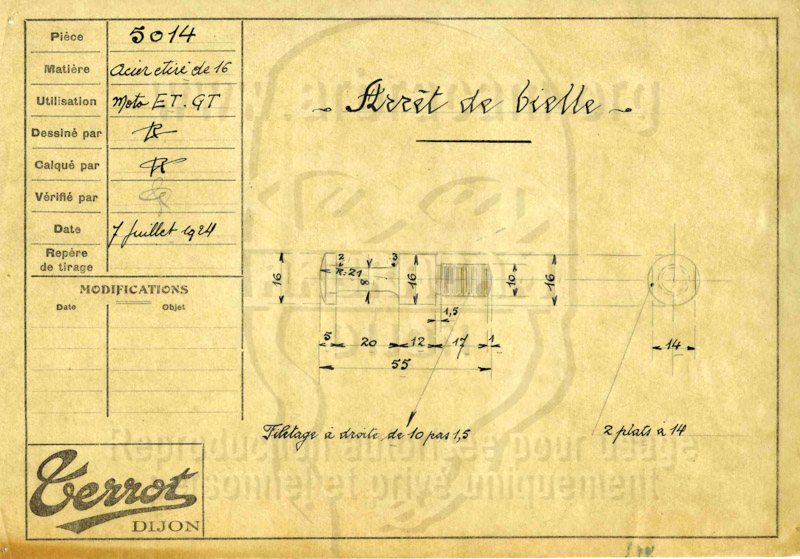 Pièce 5014
Matière Acier étiré de 16
Utilisation Moto ET. GT
Dessiné par
Calqué par
Vérifié par
Date 7 Juillet 1924
Repère
de tirage
MODIFICATIONS
Date Objet
Arrêt de bielle
2 3
R=21
16 8 16 10 16
1,5
5 20 12 17 1 14
55
Filetage à droite, de 10 pas 1,5
2 plats à 14
Terrot
DIJON
Reproduction autorisée pour l'usage
personnel et privé uniquement